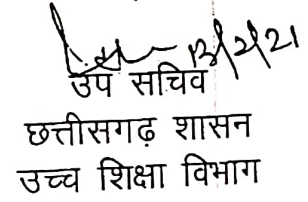 13/2/21
उप सचिव
छत्तीसगढ़ शासन
उच्च शिक्षा विभाग